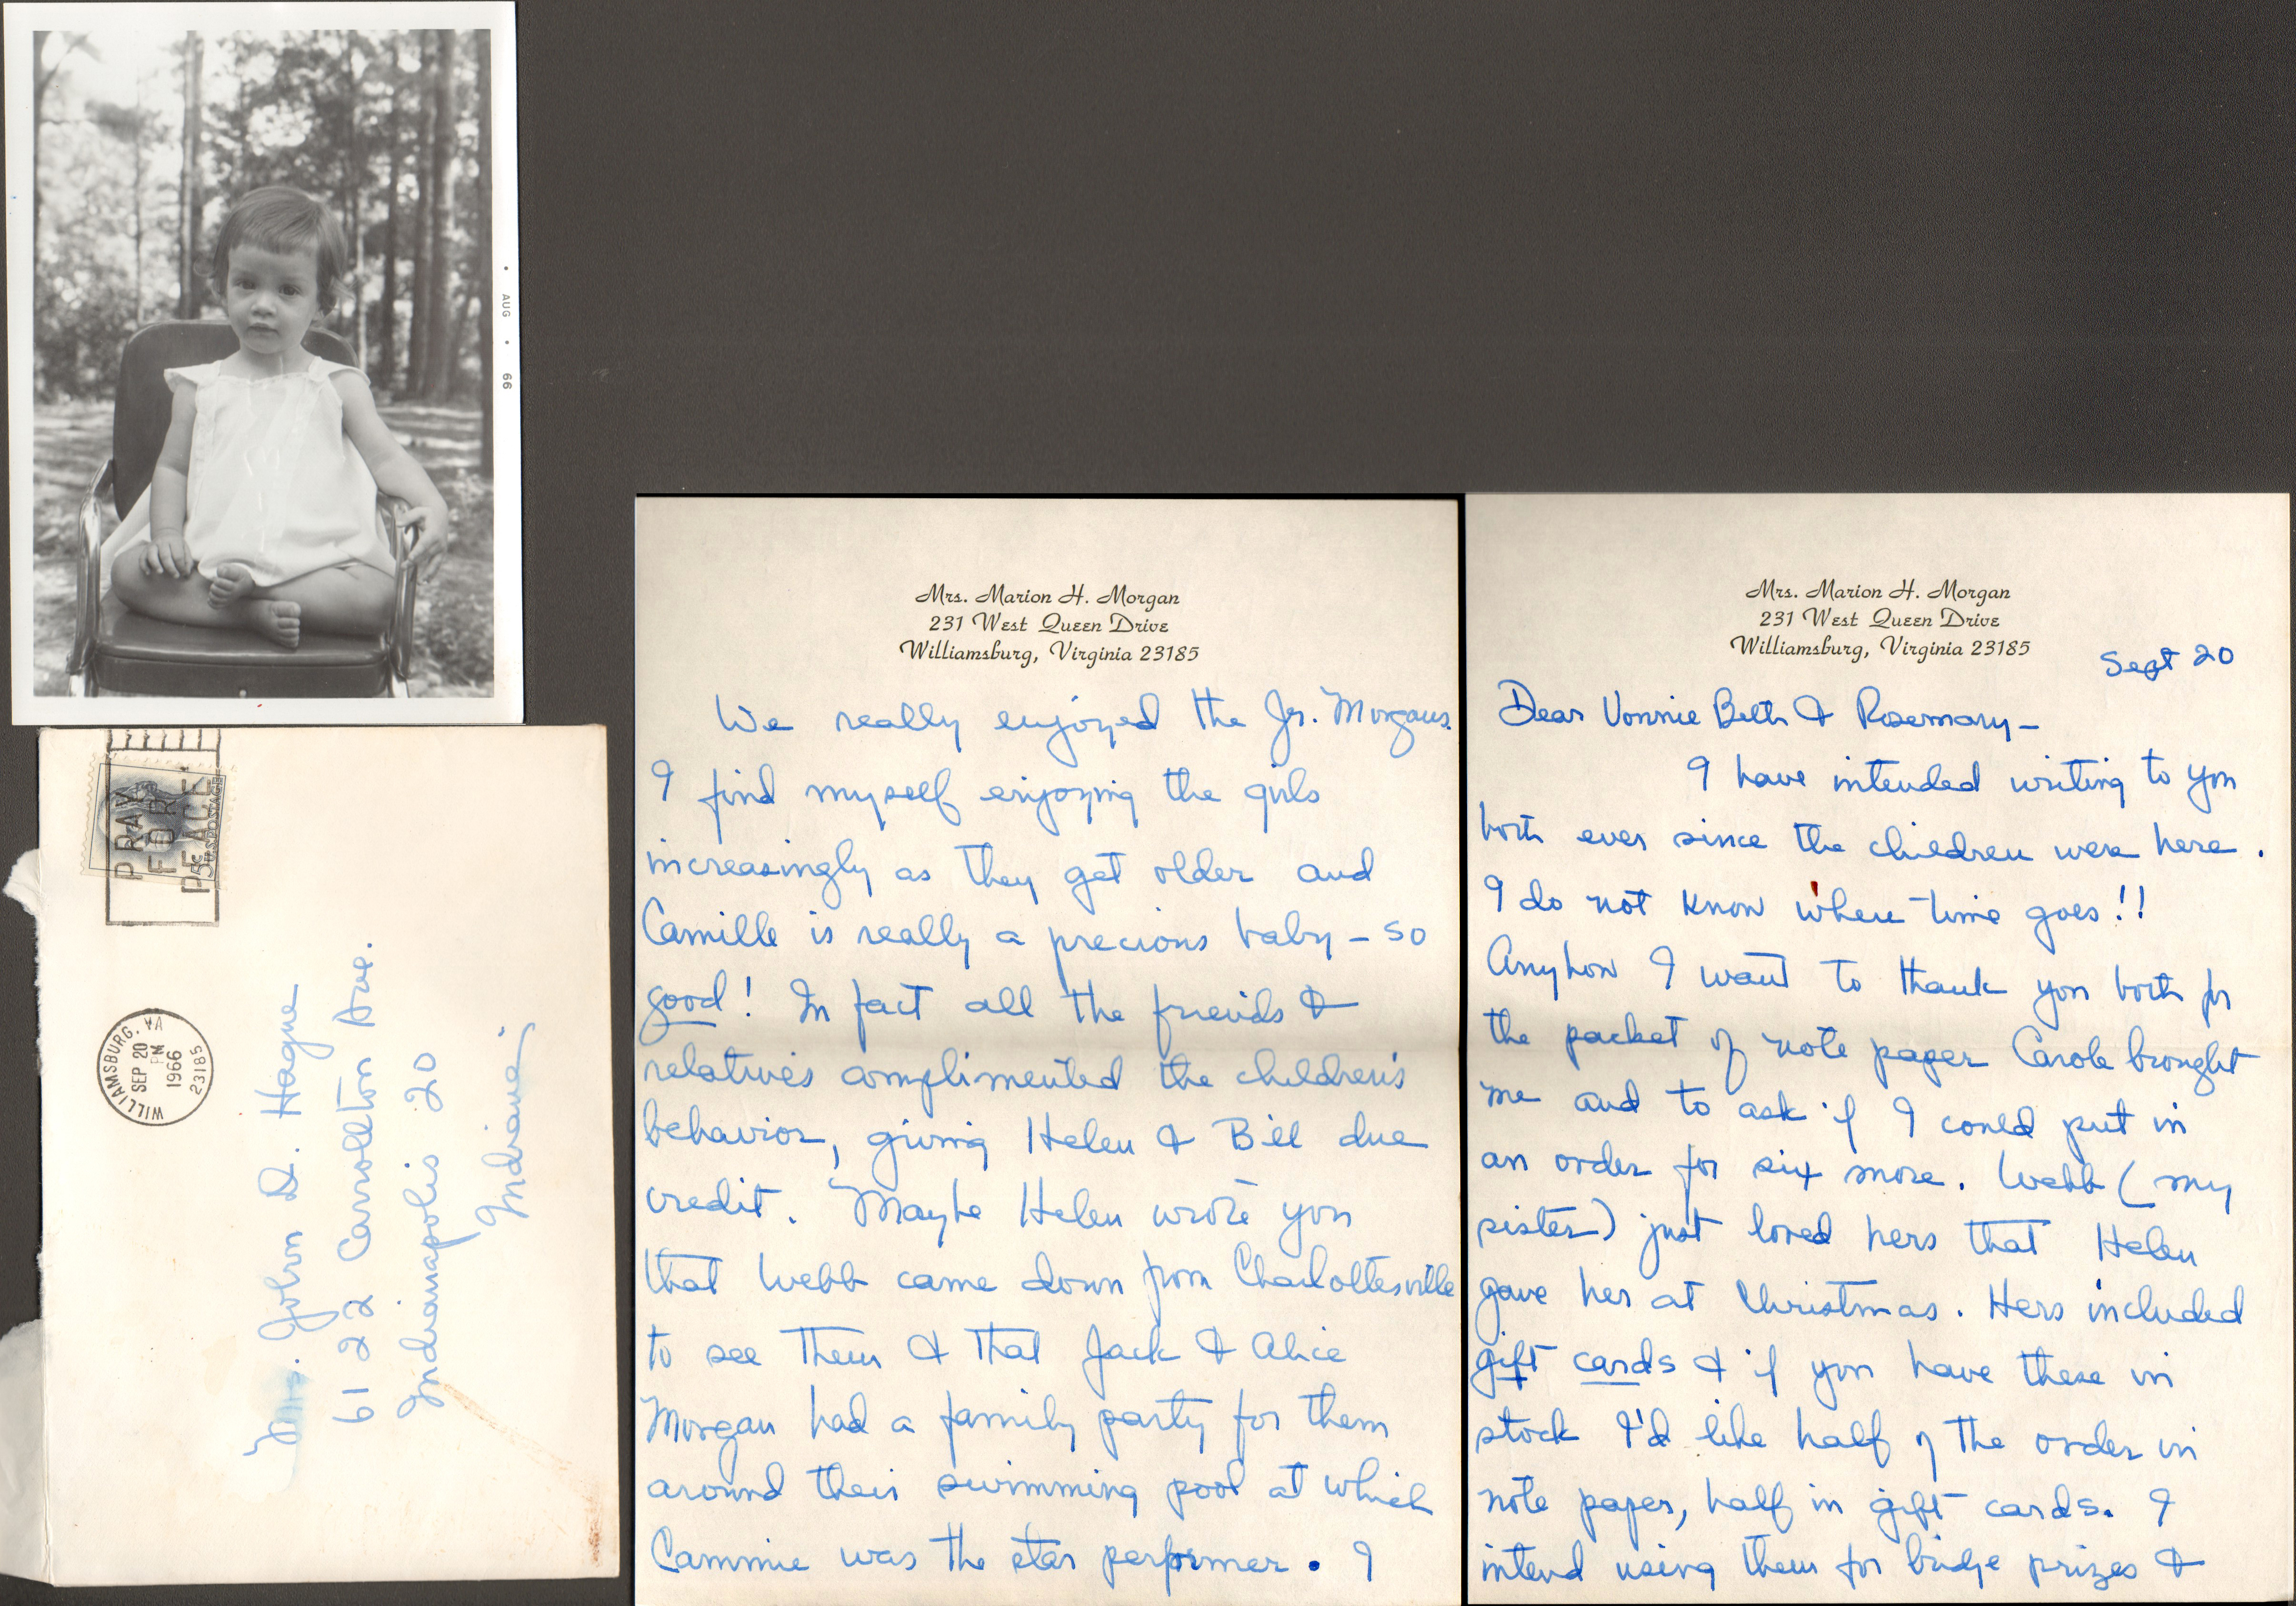 • AUG • 66
PRAY
FOR
PEACE
5c U.S. POSTAGE
WILLIAMSBURG, VA
SEP 20
PM
1966
23185
Mrs. John D. Hague
6122 Carrollton Ave.
Indianapolis 20
Indiana
Mrs. Marion H. Morgan
231 West Queen Drive
Williamsburg, Virginia 23185
We really enjoyed the Jr. Morgans.
I find myself enjoying the girls
increasingly as they get older and
Camille is really a precious baby – so
good! In fact all the friends &
relatives complimented the children's
behavior, giving Helen & Bill due
credit. Maybe Helen wrote you
that Webb came down from Charlottesville
to see them & that Jack & Alice
Morgan had a family party for them
around their swimming pool at which
Cammie was the star performer. I
Mrs. Marion H. Morgan
231 West Queen Drive
Williamsburg, Virginia 23185
Sept 20
Dear Vonnie Beth & Rosemary –
I have intended writing to you
both ever since the children were here.
I do not know where time goes!!
Anyhow I want to thank you both for
the packet of note paper Carole brought
me and to ask if I could put in
an order for six more. Webb (my
sister) just loved hers that Helen
gave her at Christmas. Hers included
gift cards & if you have these in
stock I'd like half of the order in
note paper, half in gift cards. I
intend using them for bridge prizes &